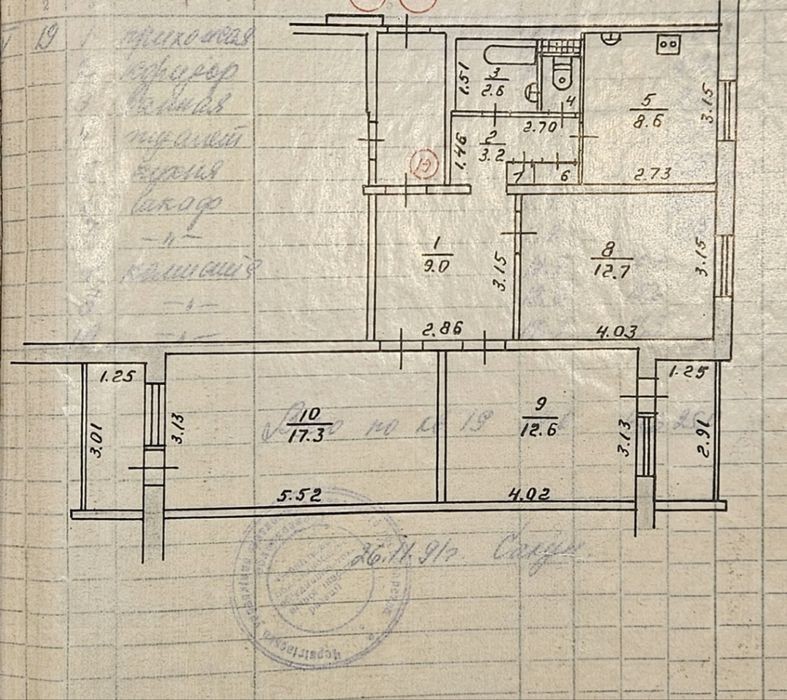 19 1 прихожая
2 коридор
3 ванная
4 туалет
5 кухня
6 шкаф
7 —"—
8 комната
9 —"—
10 —"—
1.51
3
2.6
4
5
8.6
3.15
2.70
2
3.2
1.46
7
6
2.73
19
1
9.0
3.15
2.86
8
12.7
3.15
4.03
1.25
3.01
3.13
10
17.3
5.52
9
12.6
4.02
3.13
1.25
2.91
по кв 19
26.11.91г.